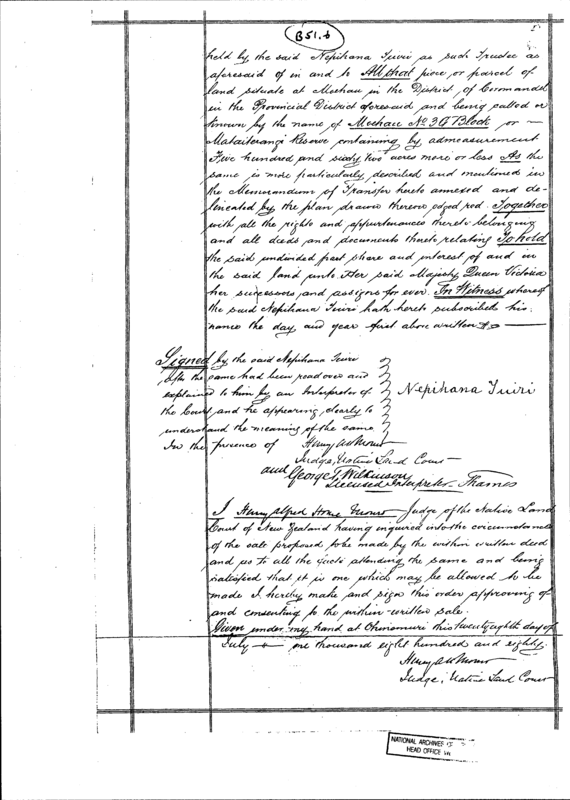 B51.b
held by the said Nepihana Tuiri as such Trustee as
aforesaid of in and to All that piece or parcel of
land situate at Moehau in the District of Coromandel
in the Provincial District aforesaid and being called or
known by the name of Moehau No 3G Block or
Mataiterangi Reserve containing by admeasurement
Five hundred and sixty two acres more or less As the
same is more particularly described and mentioned in
the Memorandum of Transfer hereto annexed and de-
lineated by the plan drawn thereon edged red. Together
with all the rights and appurtenances thereto belonging
and all deeds and documents thereto relating To hold
the said undivided part share and interest of and in
the said land unto Her said Majesty Queen Victoria
her successors and assigns for ever. In Witness whereof
the said Nepihana Tuiri hath hereto subscribed his
name the day and year first above written
Signed by the said Nepihana Tuiri
after the same had been read over and
explained to him by an Interpreter of
the Court and he appearing clearly to
understand the meaning of the same
In the presence of
Nepihana Tuiri
Henry A H Monro
Judge, Native Land Court
and George T Wilkinson
Licensed Interpreter Thames
I Henry Alfred Home Monro Judge of the Native Land
Court of New Zealand having inquired into the circumstances
of the sale proposed to be made by the within written deed
and as to all the facts attending the same and being
satisfied that it is one which may be allowed to be
made I hereby make and sign this order approving of
and consenting to the within-written sale.
Given under my hand at Ohinemuri this twenty eighth day of
July one thousand eight hundred and eighty.
Henry A H Monro
Judge, Native Land Court
NATIONAL ARCHIVES
HEAD OFFICE